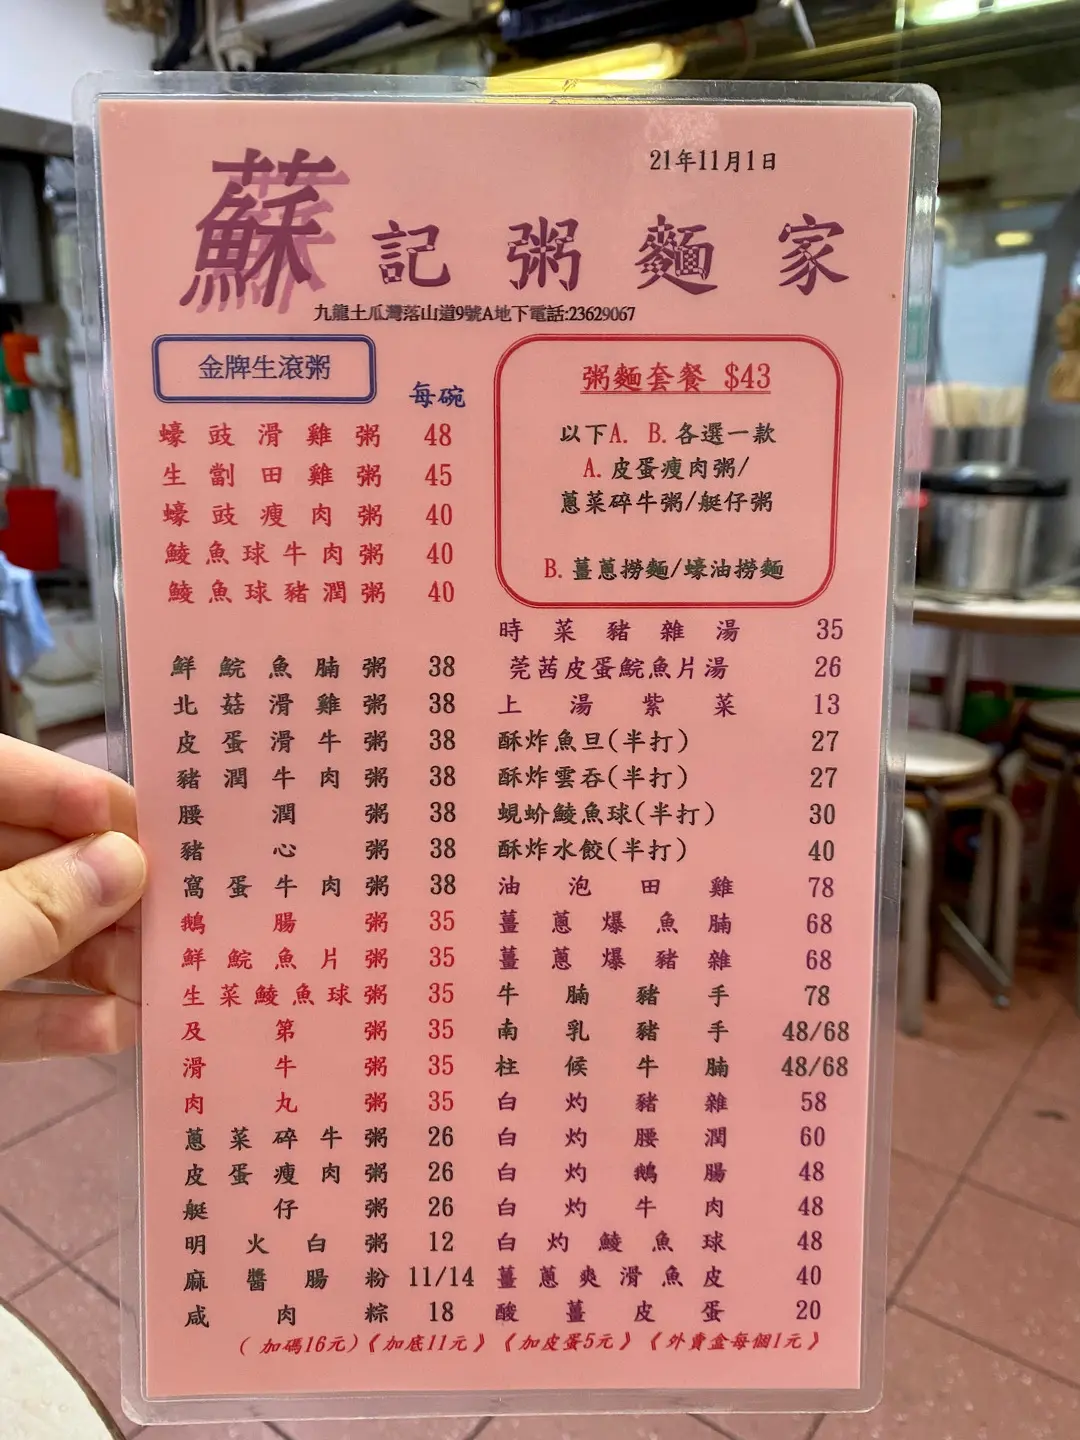 21年11月1日
蘇記粥麵家
九龍土瓜灣落山道9號A地下電話:23629067
金牌生滾粥
每碗
蠔豉滑雞粥 48
生劏田雞粥 45
蠔豉瘦肉粥 40
鯪魚球牛肉粥 40
鯪魚球豬潤粥 40
鮮鯇魚腩粥 38
北菇滑雞粥 38
皮蛋滑牛粥 38
豬潤牛肉粥 38
腰潤粥 38
豬心粥 38
窩蛋牛肉粥 38
鵝腸粥 35
鮮鯇魚片粥 35
生菜鯪魚球粥 35
及第粥 35
滑牛粥 35
肉丸粥 35
蔥菜碎牛粥 26
皮蛋瘦肉粥 26
艇仔粥 26
明火白粥 12
麻醬腸粉 11/14
咸肉粽 18
粥麵套餐 $43
以下A. B.各選一款
A.皮蛋瘦肉粥/
蔥菜碎牛粥/艇仔粥
B.薑蔥撈麵/蠔油撈麵
時菜豬雜湯 35
芫茜皮蛋鯇魚片湯 26
上湯紫菜 13
酥炸魚旦(半打) 27
酥炸雲吞(半打) 27
蜆蚧鯪魚球(半打) 30
酥炸水餃(半打) 40
油泡田雞 78
薑蔥爆魚腩 68
薑蔥爆豬雜 68
牛腩豬手 78
南乳豬手 48/68
柱候牛腩 48/68
白灼豬雜 58
白灼腰潤 60
白灼鵝腸 48
白灼牛肉 48
白灼鯪魚球 48
薑蔥爽滑魚皮 40
酸薑皮蛋 20
(加碼16元)《加底11元》《加皮蛋5元》《外賣盒每個1元》